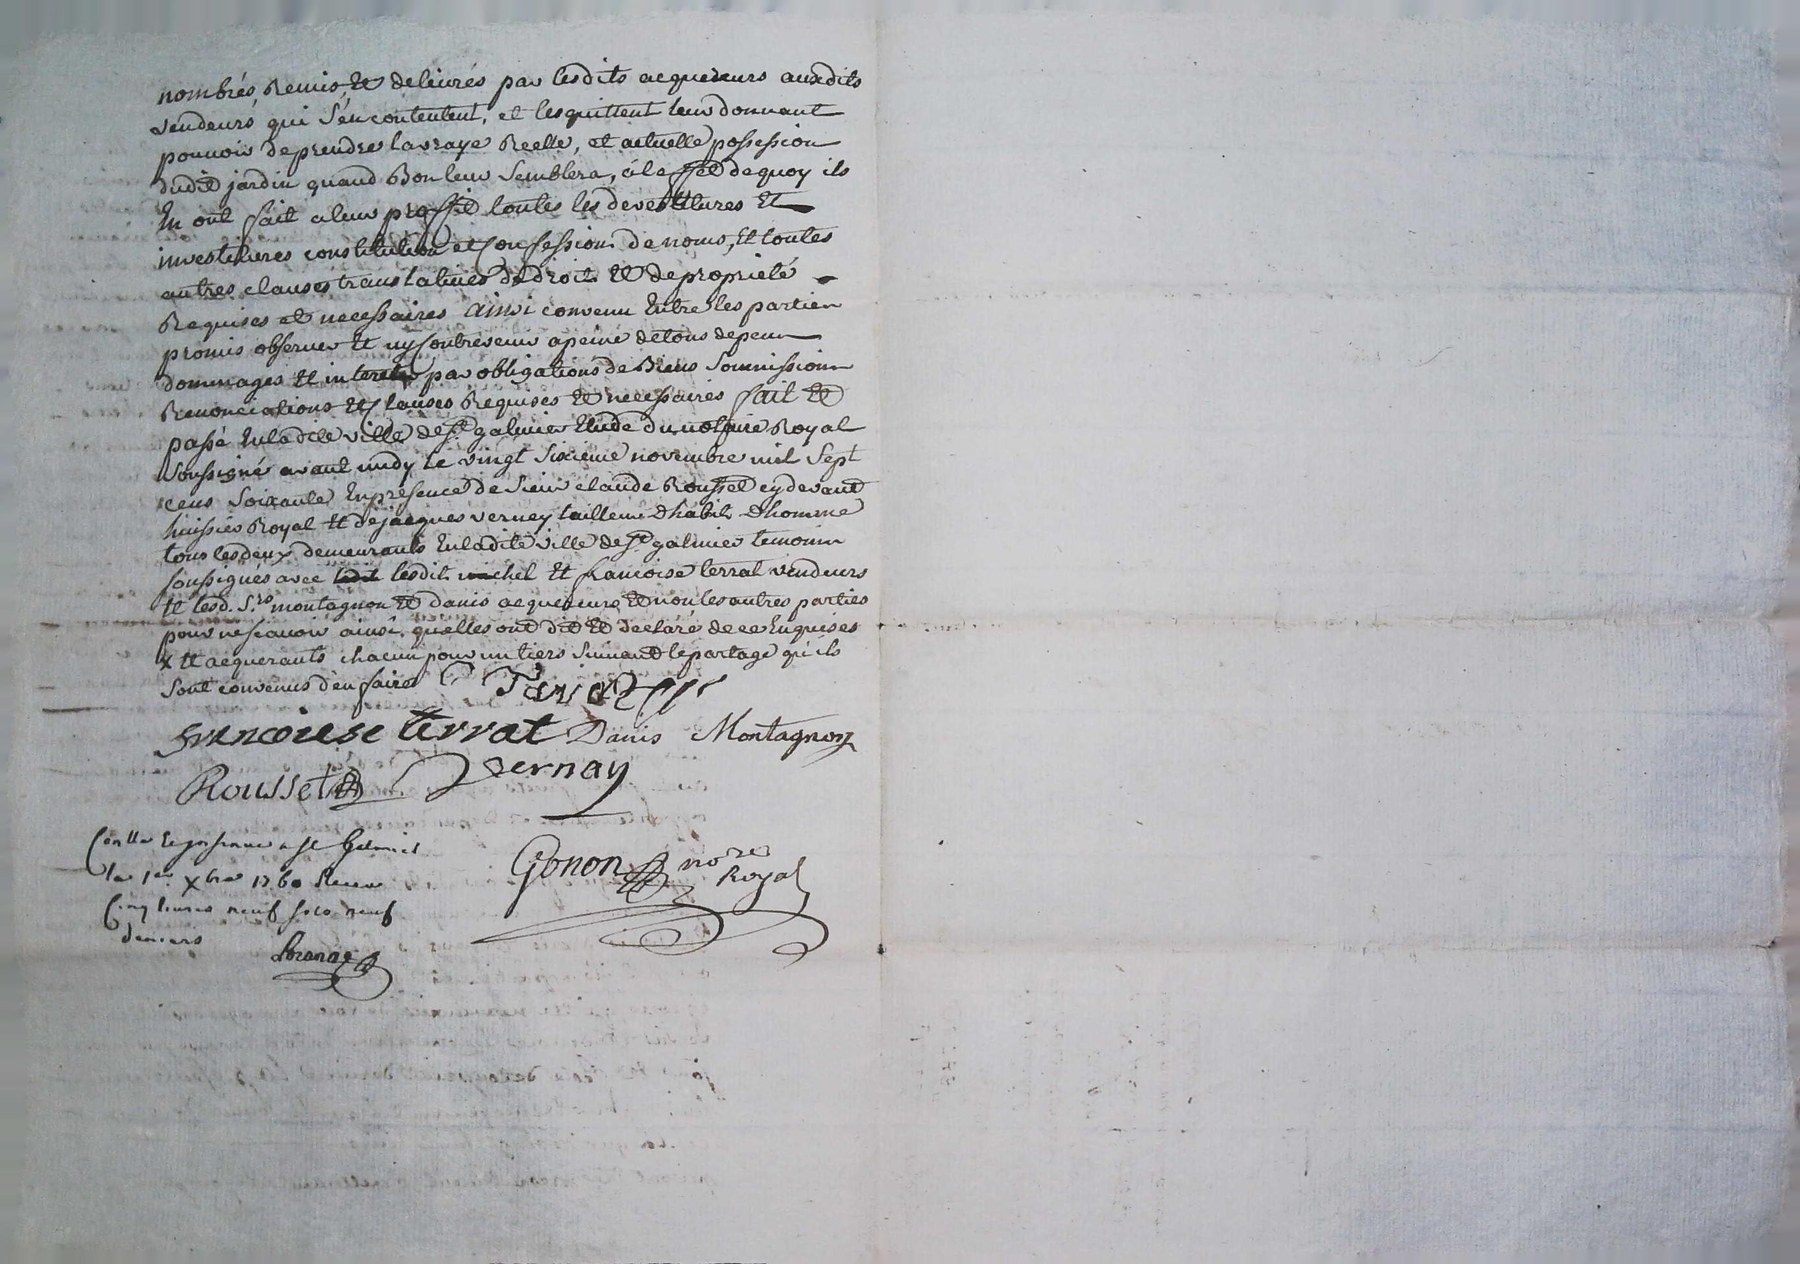 nombrés, Remis, et delivrés par lesdits acquereurs auxdits
vendeurs qui s'en contentent, et les quittent leur donnant
pouvoir de prendre la vraye Reelle, et actuelle possession
dudit jardin quand Bon leur semblera, à l'effet de quoy ils
En ont fait a leur proffit toutes les devestitures Et
investitures constitution et Confession de noms, Et toutes
autres clauses translatives de droit Et de proprieté
Requises et necessaires ainsi convenu Entre les parties
promis observer Et ny Contrevenir a peine de tous depens
dommages Et interets par obligations de Biens Soumissions
Renonciations Et Clauses Requises Et necessaires fait Et
passé En ladite ville de St. galmier Etude du notaire Royal
Soussigné avant midy le vingt Sixieme novembre mil Sept
cens Soixante En presence de Sieur claude Rousset cy devant
huissier Royal Et de jacques verney tailleur D'habits D'homme
tous les deux demeurants En ladite ville de St. galmier temoins
soussignés avec lesdit. michel Et francoise terrat vendeurs
Et lesd. S.rs montagnon Et danis acquereurs, Et non les autres parties
pour ne scavoir ainsi quelles ont dit Et declaré de ce Enquises
x Et acquerants chacun pour un tiers Suivant le partage qu'ils
Sont convenus d'en faire
francoise terrat Danis Montagnon
Rousset vernay
Con.lle a St Galmier
le 1er Xbre 1760 Receu
Cinq livres neuf sols neuf
deniers
Gonon no.re
Royal